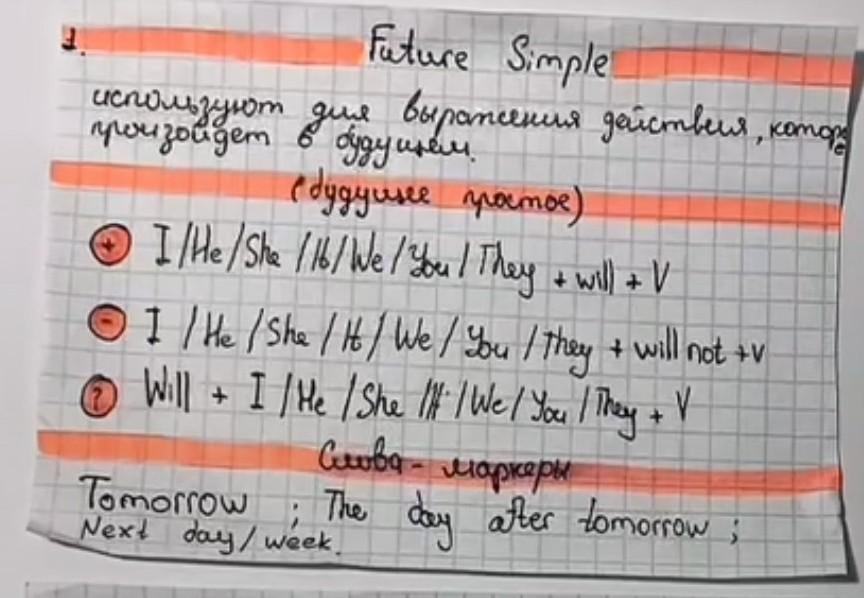 1. Future Simple
используют для выражения действия, которое
произойдет в будущем.
(будущее простое)
+ I/He/She/It/We/You/They + will + V
- I/He/She/It/We/You/They + will not + v
? Will + I/He/She/It/We/You/They + V
Слова - маркеры
Tomorrow ; The day after tomorrow ;
Next day/week.